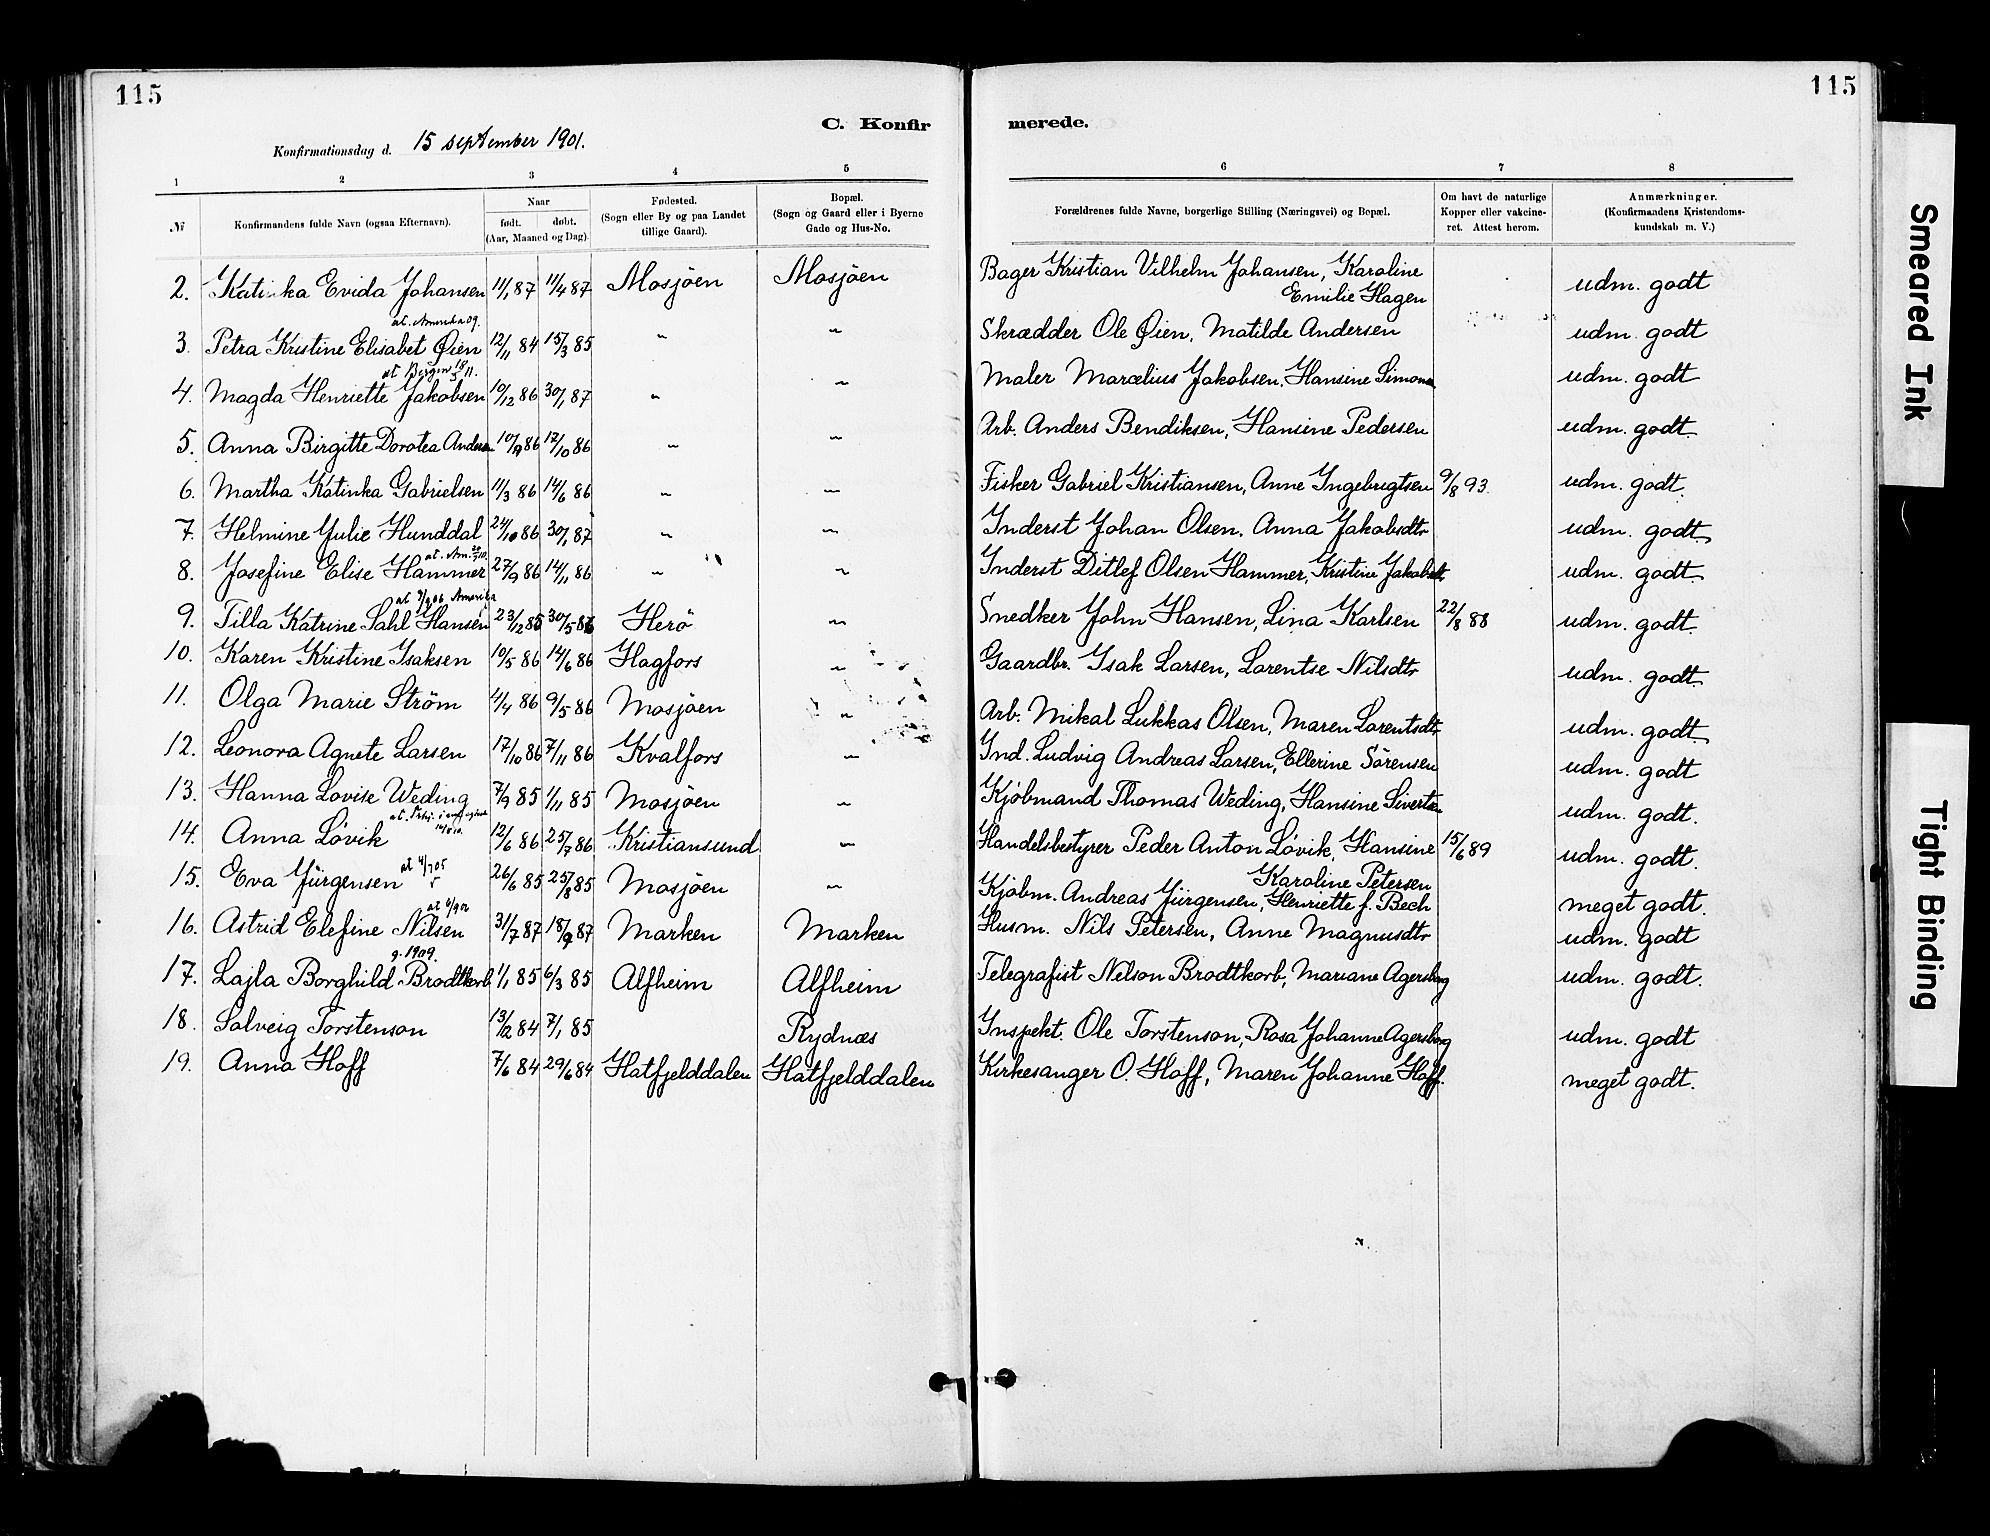 115
115
C. Konfir
merede.
Konfirmationsdag d. 15 september 1901.
1 2 3 4 5 6 7 8
№ Konfirmandens fulde Navn (ogsaa Efternavn). Naar født. døbt. (Aar, Maaned og Dag). Fødested. (Sogn eller By og paa Landet tillige Gaard). Bopæl. (Sogn og Gaard eller i Byerne Gade og Hus-No. Forældrenes fulde Navne, borgerlige Stilling (Næringsvei) og Bopæl. Om havt de naturlige Kopper eller vakcineret. Attest herom. Anmærkninger. (Konfirmandens Kristendomskundskab m. V.)
2. Katinka Evida Johansen 11/1 87 11/4 87 Mosjöen Mosjöen Bager Kristian Vilhelm Johansen, Karoline Emilie Hagen udm. godt
at. Amerika 09.
3. Petra Kristine Elisabet Øien 12/11 84 15/3 85 " " Skrædder Ole Øien, Matilde Andersen udm. godt
at Bergen
4. Magda Henriette Jakobsen 10/12 86 30/1 87 " " Maler Marcelius Jakobsen, Hansine udm. godt
5. Anna Birgitte Dorotea Andersen 10/9 86 12/10 86 " " Arb. Anders Bendiksen, Hansine Pedersen udm. godt.
6. Martha Katinka Gabrielsen 11/3 86 14/6 86 " " Fisker Gabriel Kristiansen, Anne Ingebrigtsen 9/8 93. udm. godt.
7. Helmine Julie Hunddal 24/10 86 30/1 87 " " Inderst Johan Olsen. Anna Jakobsdtr udm. godt.
at. Am.
8. Josefine Elise Hammer 27/9 86 14/11 86 " " Inderst Ditlef Olsen Hammer, Kristine Jakobsdt. udm. godt.
at 9/9 06 Amerika
9. Tilla Katrine Sahl Hansen 23/12 85 30/5 86 Herö " Snedker John Hansen, Lina Karlsen 22/8 88 udm. godt.
10. Karen Kristine Isaksen 10/5 86 14/6 86 Hagfors " Gaardbr. Isak Larsen, Lorentse Nilsdtr udm. godt.
11. Olga Marie Ström 4/4 86 9/5 86 Mosjöen " Arb. Mikal Lukkas Olsen, Maren Lorentsdtr udm. godt.
12. Leonora Agnete Larsen 17/10 86 7/11 86 Kvalfors " Ind. Ludvig Andreas Larsen, Ellerine Sörensen udm. godt
13. Hanna Lovise Weding 7/9 85 1/11 85 Mosjöen " Kjöbmand Thomas Weding, Hansine Sivertsen udm. godt.
14. Anna Lövik 12/6 86 25/7 86 Kristiansund " Handelsbestyrer Peder Anton Lövik, Hansine Karoline Petersen 15/6 89 udm. godt.
15. Eva Jürgensen at 4/7 05 26/6 85 25/8 85 Mosjöen " Kjöbm. Andreas Jürgensen, Henriette f. Bech meget godt.
at 6/9 02
16. Astrid Elefine Nilsen 31/7 87 18/9 87 Marken Marken Husm. Nils Petersen, Anne Magnusdtr udm. godt
g. 1909.
17. Lajla Borghild Brodtkorb 1/1 85 6/3 85 Alfheim Alfheim Telegrafist Nelson Brodtkorb, Mariane Agersborg udm. godt.
18. Solveig Torstenson 13/12 84 7/1 85 Rydnæs Inspekt. Ole Torstenson, Rosa Johanne Agersborg udm. godt
19. Anna Hoff 7/6 84 29/6 84 Hatfjelddalen Hatfjelddalen Kirkesanger O. Hoff, Maren Johanne Hoff. meget godt.
Smeared Ink
Tight Binding